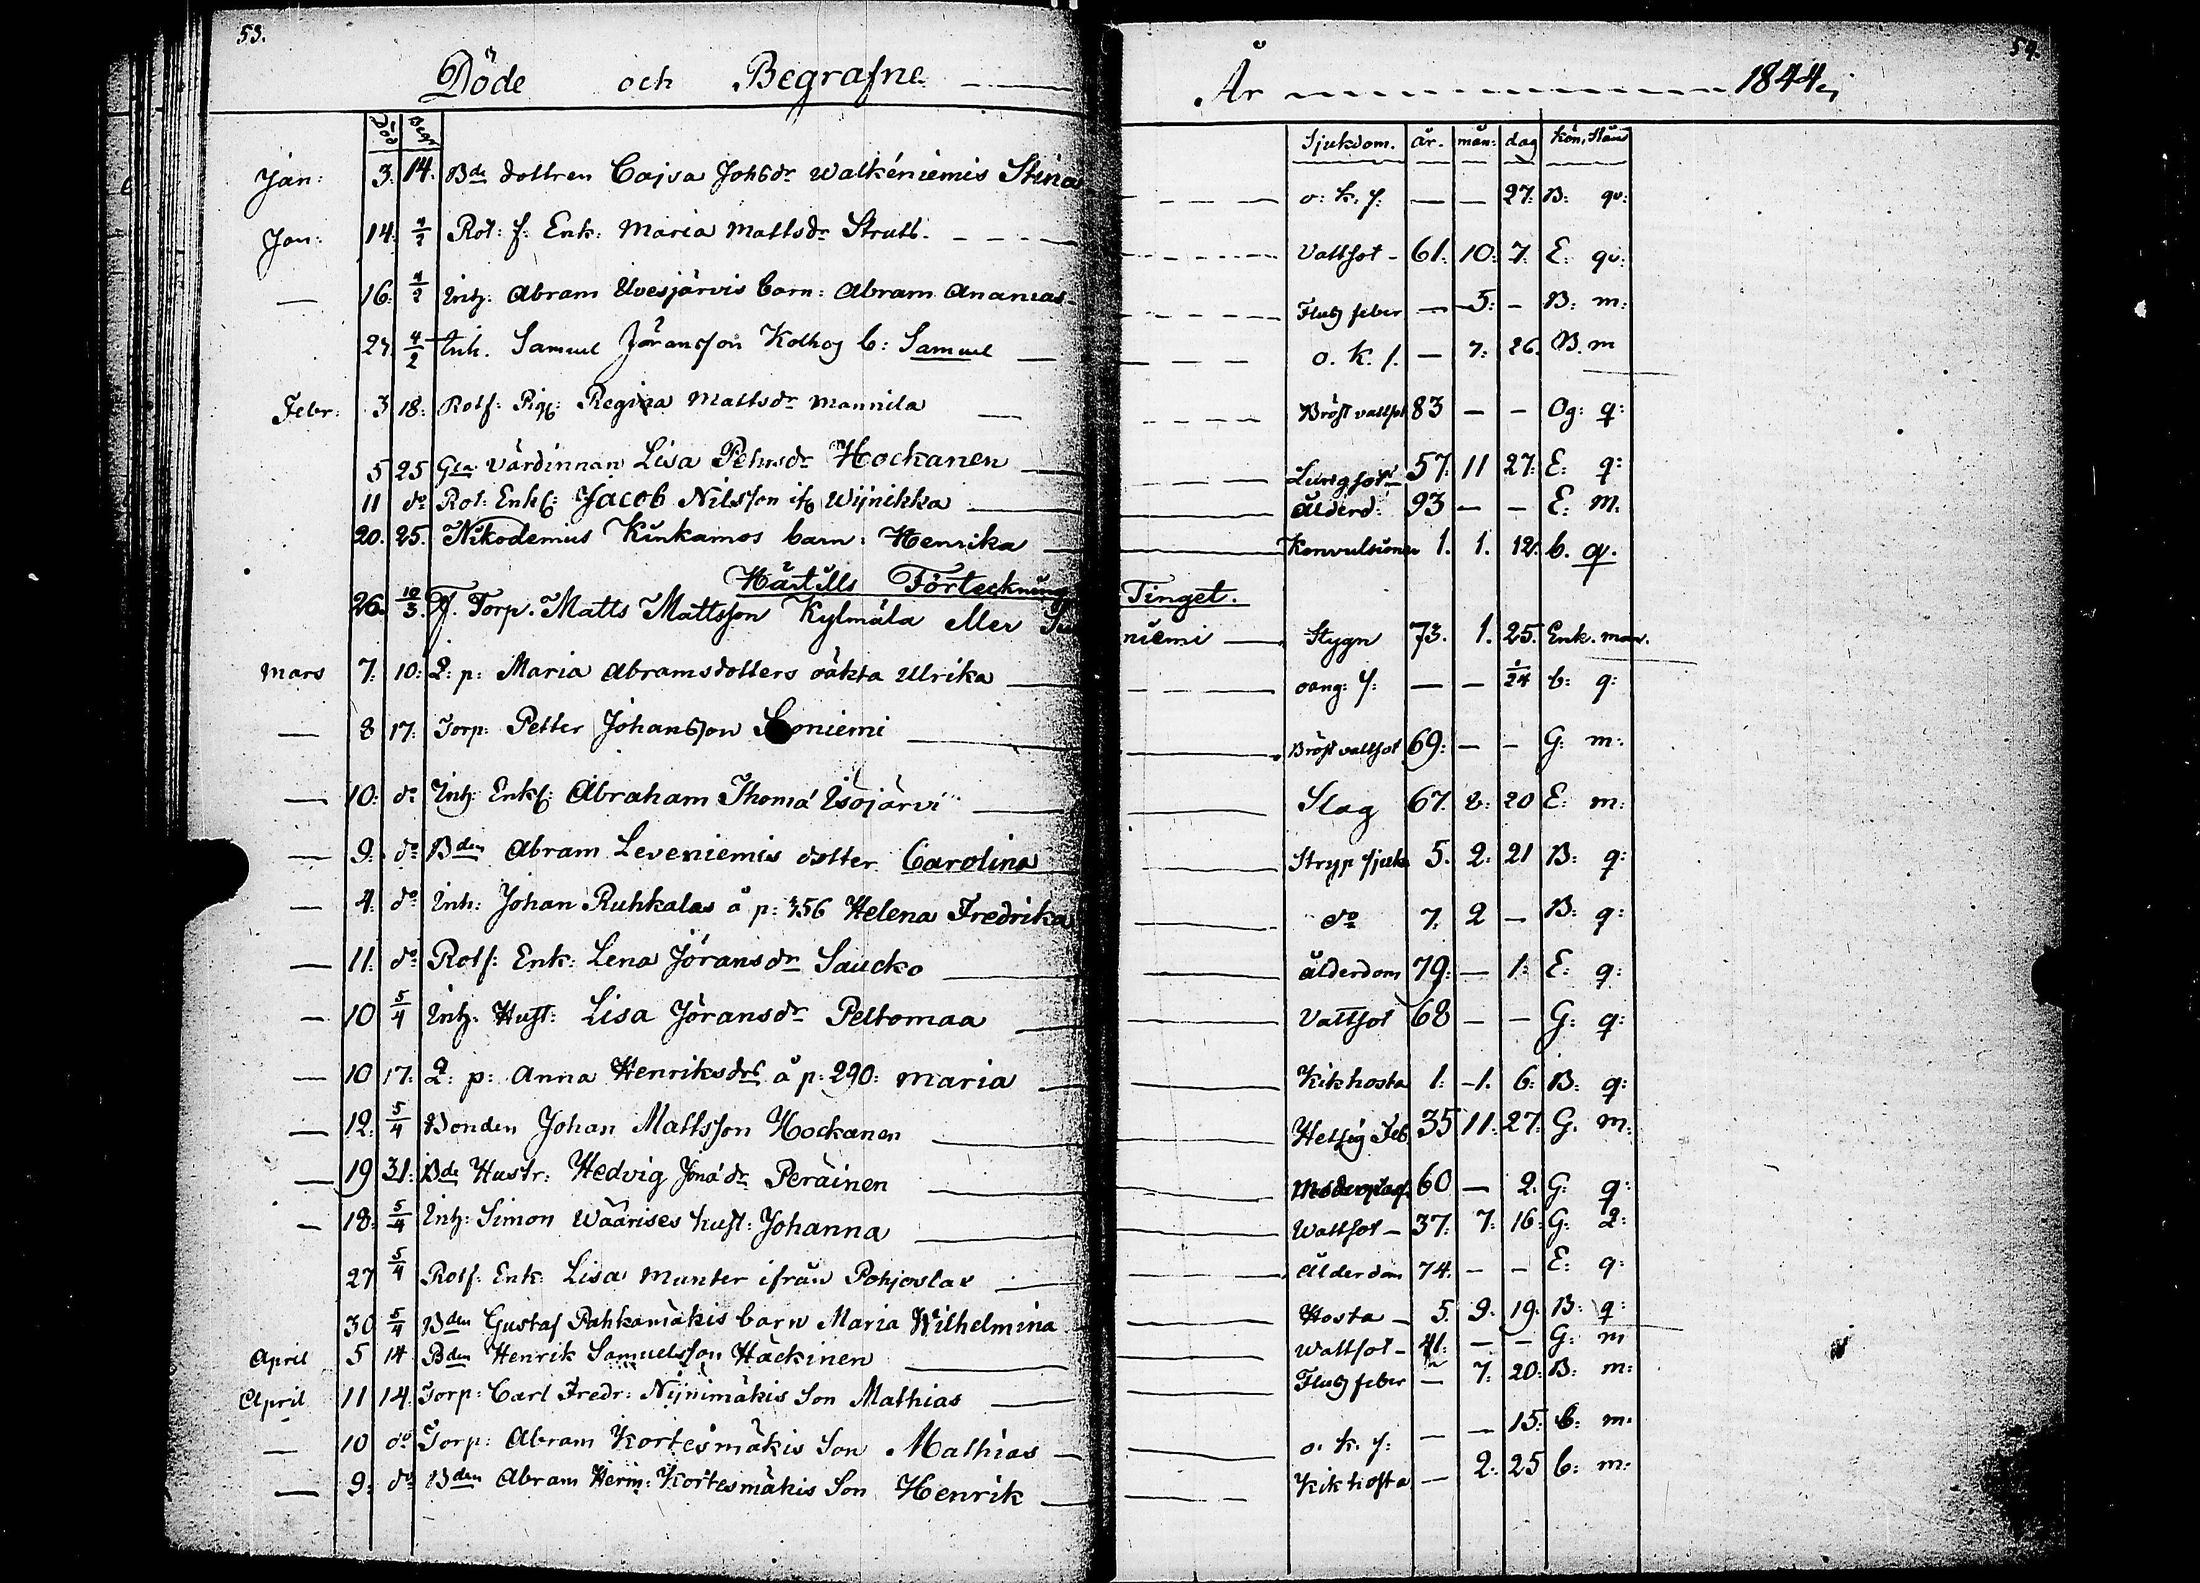 53. 54.
Döde och Begrafne År 1844,
Död Begr. Sjukdom. år. mån: dag kön, Stånd
Jan: 3. 14. Bde dottren Cajsa Johsdr Walkéniemis Stina o: k. s: — — 27: B: qv:
Jan: 14. 4/2 Rot: f: Enk: Maria Mattsdr Strutt. Vattsot - 61. 10: 7: E: qv:
— 16. 4/2 Inh: Abram Ilvesjärvis barn: Abram Ananias Fluss feber — 5: - B: m:
27. 4/2 Inh. Samuel Jöransson Kolhog b: Samuel o. k. s. — 7: 26. B. m
Febr: 3 18: Rotf: Pig: Regina Mattsdr Mannila Bröst vattsot 83 — - Og: q:
5 25 Gla Värdinnan Lisa Pehrsdr Hockanen Lungsot 57. 11 27: E: q:
11 do Rot: Enkl: Jacob Nilsson ifr Wijnikka ålderd: 93 — - E: m.
20. 25. Nikodemus Kinkamos barn: Henrika Konvulsioner 1. 1. 12. b. q.
Härtills Förteckning Tinget.
26. 10/3. F. Torp. Matts Mattsson Kylmälä eller niemi Stygn 73. 1. 25. Enk. man.
Mars 7: 10: Q: p: Maria Abramsdotters oäkta Ulrika oang: s: — — 1/24 b: q:
— 8 17: Torp: Petter Johansson oniemi Bröst vattsot 69: — - G: m:
— 10: do Inh: Enkl: Abraham Thomæ Isojärvi Slag 67. 2: 20 E: m:
— 9: do Bden Abram Leveniemis dotter Carolina Stryp sjuka 5. 2: 21 B: q:
— 4. do Inh: Johan Ruhkalas å p: 356 Helena Fredrika do 7. 2 — B: q:
— 11: do Rotf: Enk: Lena Jöransdr Saucko ålderdom 79: — 1: E: q:
— 10 5/4 Inh: Hust: Lisa Jöransdr Peltomaa Vattsot 68 — - G: q:
— 10 17: Q: p: Anna Henriksdrs å p: 290: Maria Kikhosta 1: -1. 6: B: q:
— 12: 5/4 Bonden Johan Mattsson Hockanen Hetsig Feb 35 11: 27: G. m:
— 19 31: Bde Hustr: Hedvig Jonædr Peräinen 60 — 2. G: q:
— 18: 5/4 Inh: Simon Wäärises hust: Johanna Wattsot - 37: 7: 16: G: q:
27 5/4 Rotf: Enk: Lisa Munter ifrån Pohjoslax Ålderdom 74. - - E: q:
30 5/4 Bden Gustaf Pahkamäkis barn Maria Wilhelmina Hosta - 5. 9. 19. B: q:
April 5 14 Bden Henrik Samuelsson Häckinen Wattsot - 41: — - G: m
April 11 14. Torp: Carl Fredr: Nijnimäkis Son Mathias Fluss feber — 7: 20: B: m:
— 10 do Torp: Abram Kortesmäkis Son Mathias o. k. s: — — 15: b: m:
— 9: do Bden Abram Herm: Kortesmäkis Son Henrik Kikhosta — 2: 25 b: m: